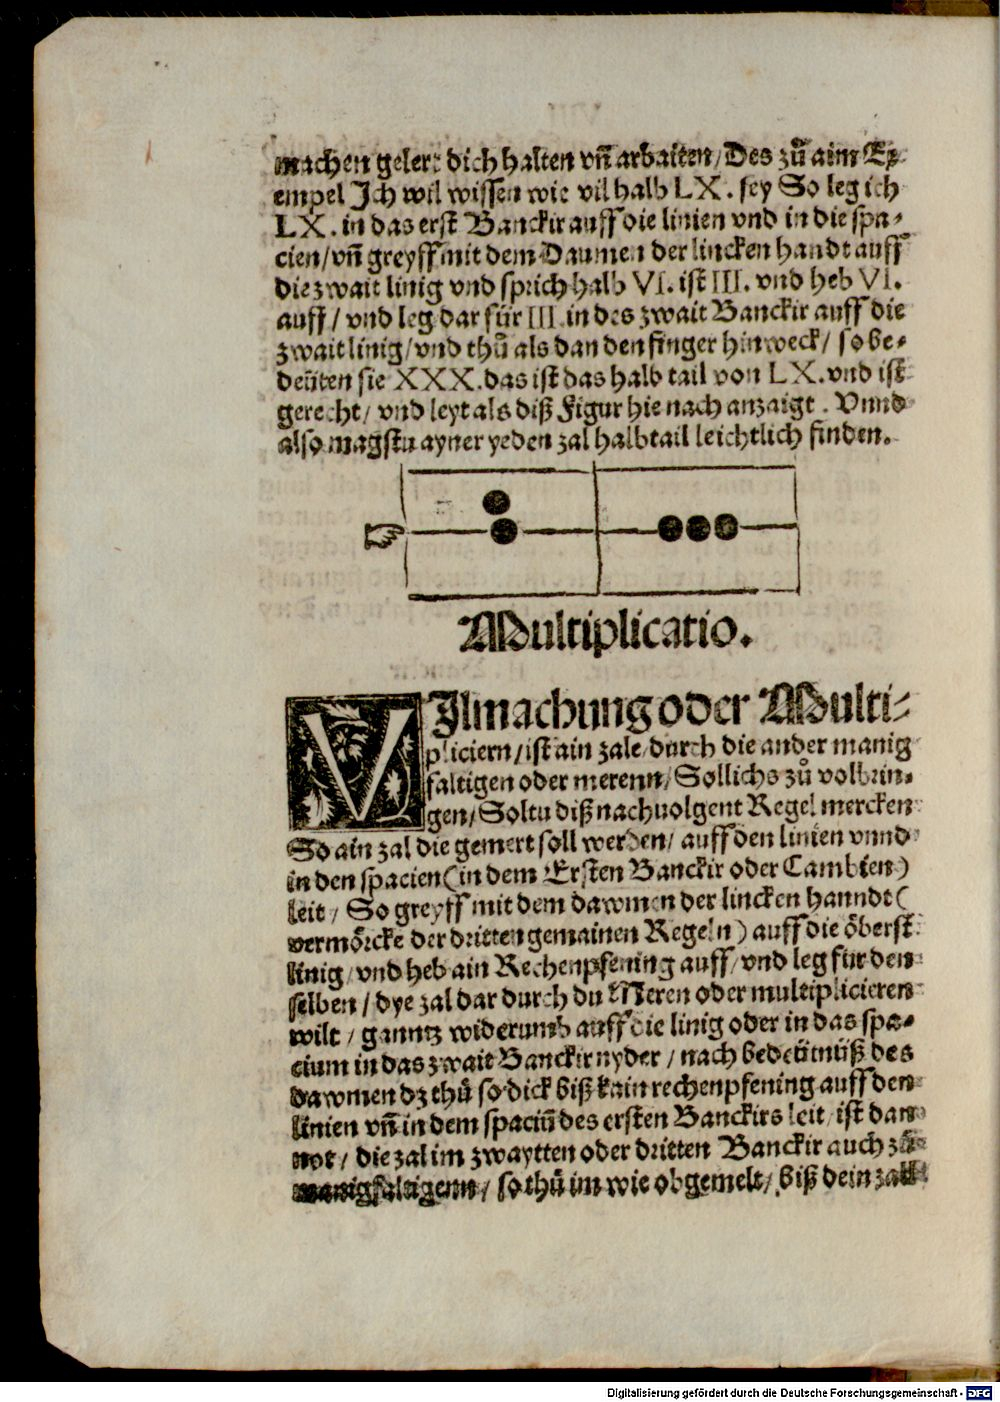 machen gelert dich halten vn̄ arbaiten/Des zů aim Ex-
empel Jch wil wissen wie vil halb LX. sey So leg ich
LX. in das erst Banckir auff die linien vnd in die spa-
cien/vn̄ greyff mit dem Daumen der lincken handt auff
die zwait linig vnd sprich halb VI. ist III. vnd heb VI.
auff/vnd leg dar für III.in des zwait Banckir auff die
zwait linig/vnd thů als dan den finger hinweck/so be-
deüten sie XXX.das ist das halb tail von LX.vnd ist
gerecht/vnd leyt als diß Figur hie nach anzaigt. Vnnd
also magstu ayner yeden zal halbtail leichtlich finden.
Multiplicatio.
VIlmachung oder Multi-
pliciern/ist ain zale/durch die ander manig
faltigen oder merenn/Sollichs zů volbrin-
gen/Soltu diß nachuolgent Regel mercken
So ain zal die gemert soll werden/auff den linien vnnd
in den spacien(in dem Ersten Banckir oder Cambien)
leit/So greyff mit dem dawmen der lincken hanndt(
vermörcke der dritten gemainen Regeln)auff die öberst
linig/vnd heb ain Rechenpfening auff/vnd leg für den
selben/dye zal dar durch du Meren oder multiplicieren
wilt/ganntz widerumb auff die linig oder in das spa-
cium in das zwait Banckir nyder/nach bedeütnüß des
dawmen dz thů so dick biß kain rechenpfening auff den
linien vn̄ in dem spaciū des ersten Banckirs leit/ist dan
not/die zal im zwaytten oder dritten Banckir auch zů
manigfaltigenn/so thů im wie obgemelt/biß dein zall
Digitalisierung gefördert durch die Deutsche Forschungsgemeinschaft - DFG